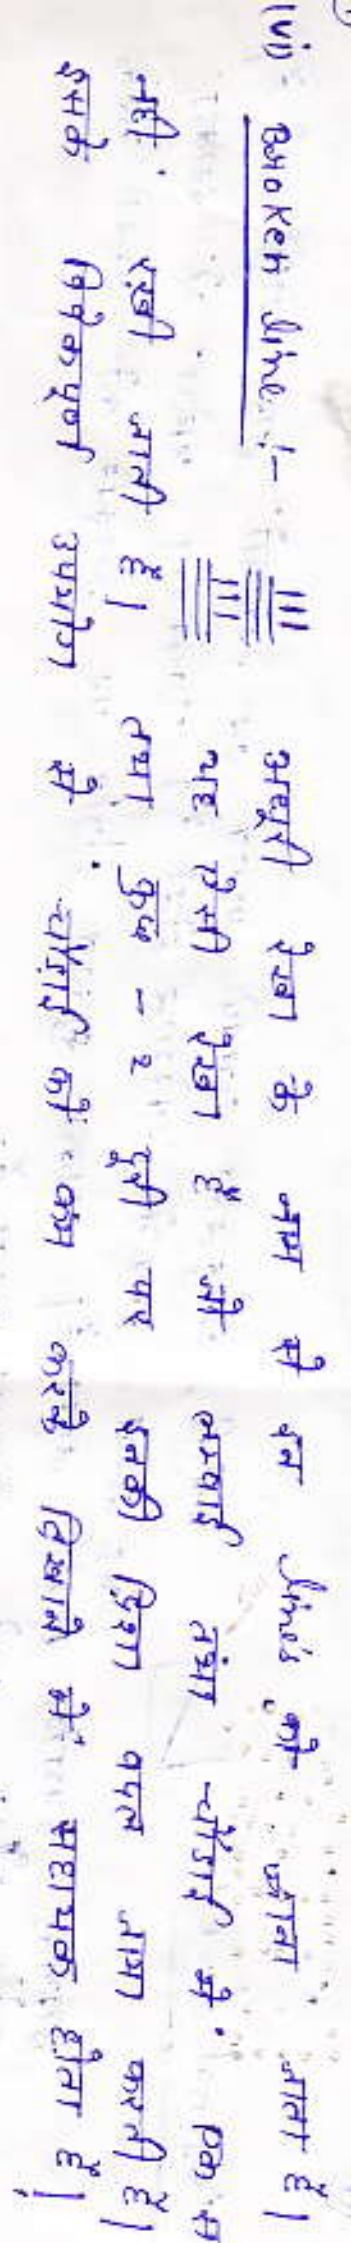 (vi) Broken line :- अधूरी रेखा के नाम से इन line's को जाना जाता है।
यह ऐसी रेखा है जो लम्बाई तथा चौड़ाई में एक सी
नहीं रखी जाती है। तथा कुछ - २ दूरी पर इनकी दिशा बदल जाया करती है।
इसके विवेकपूर्ण उपयोग से चौड़ाई को कम करके दिखाने में सहायक होता है।